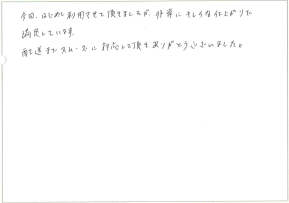 今回、はじめて利用させて頂きましたが、非常にキレイな仕上がりに
満足しています。
配送までスムーズに対応して頂きありがとうございました。